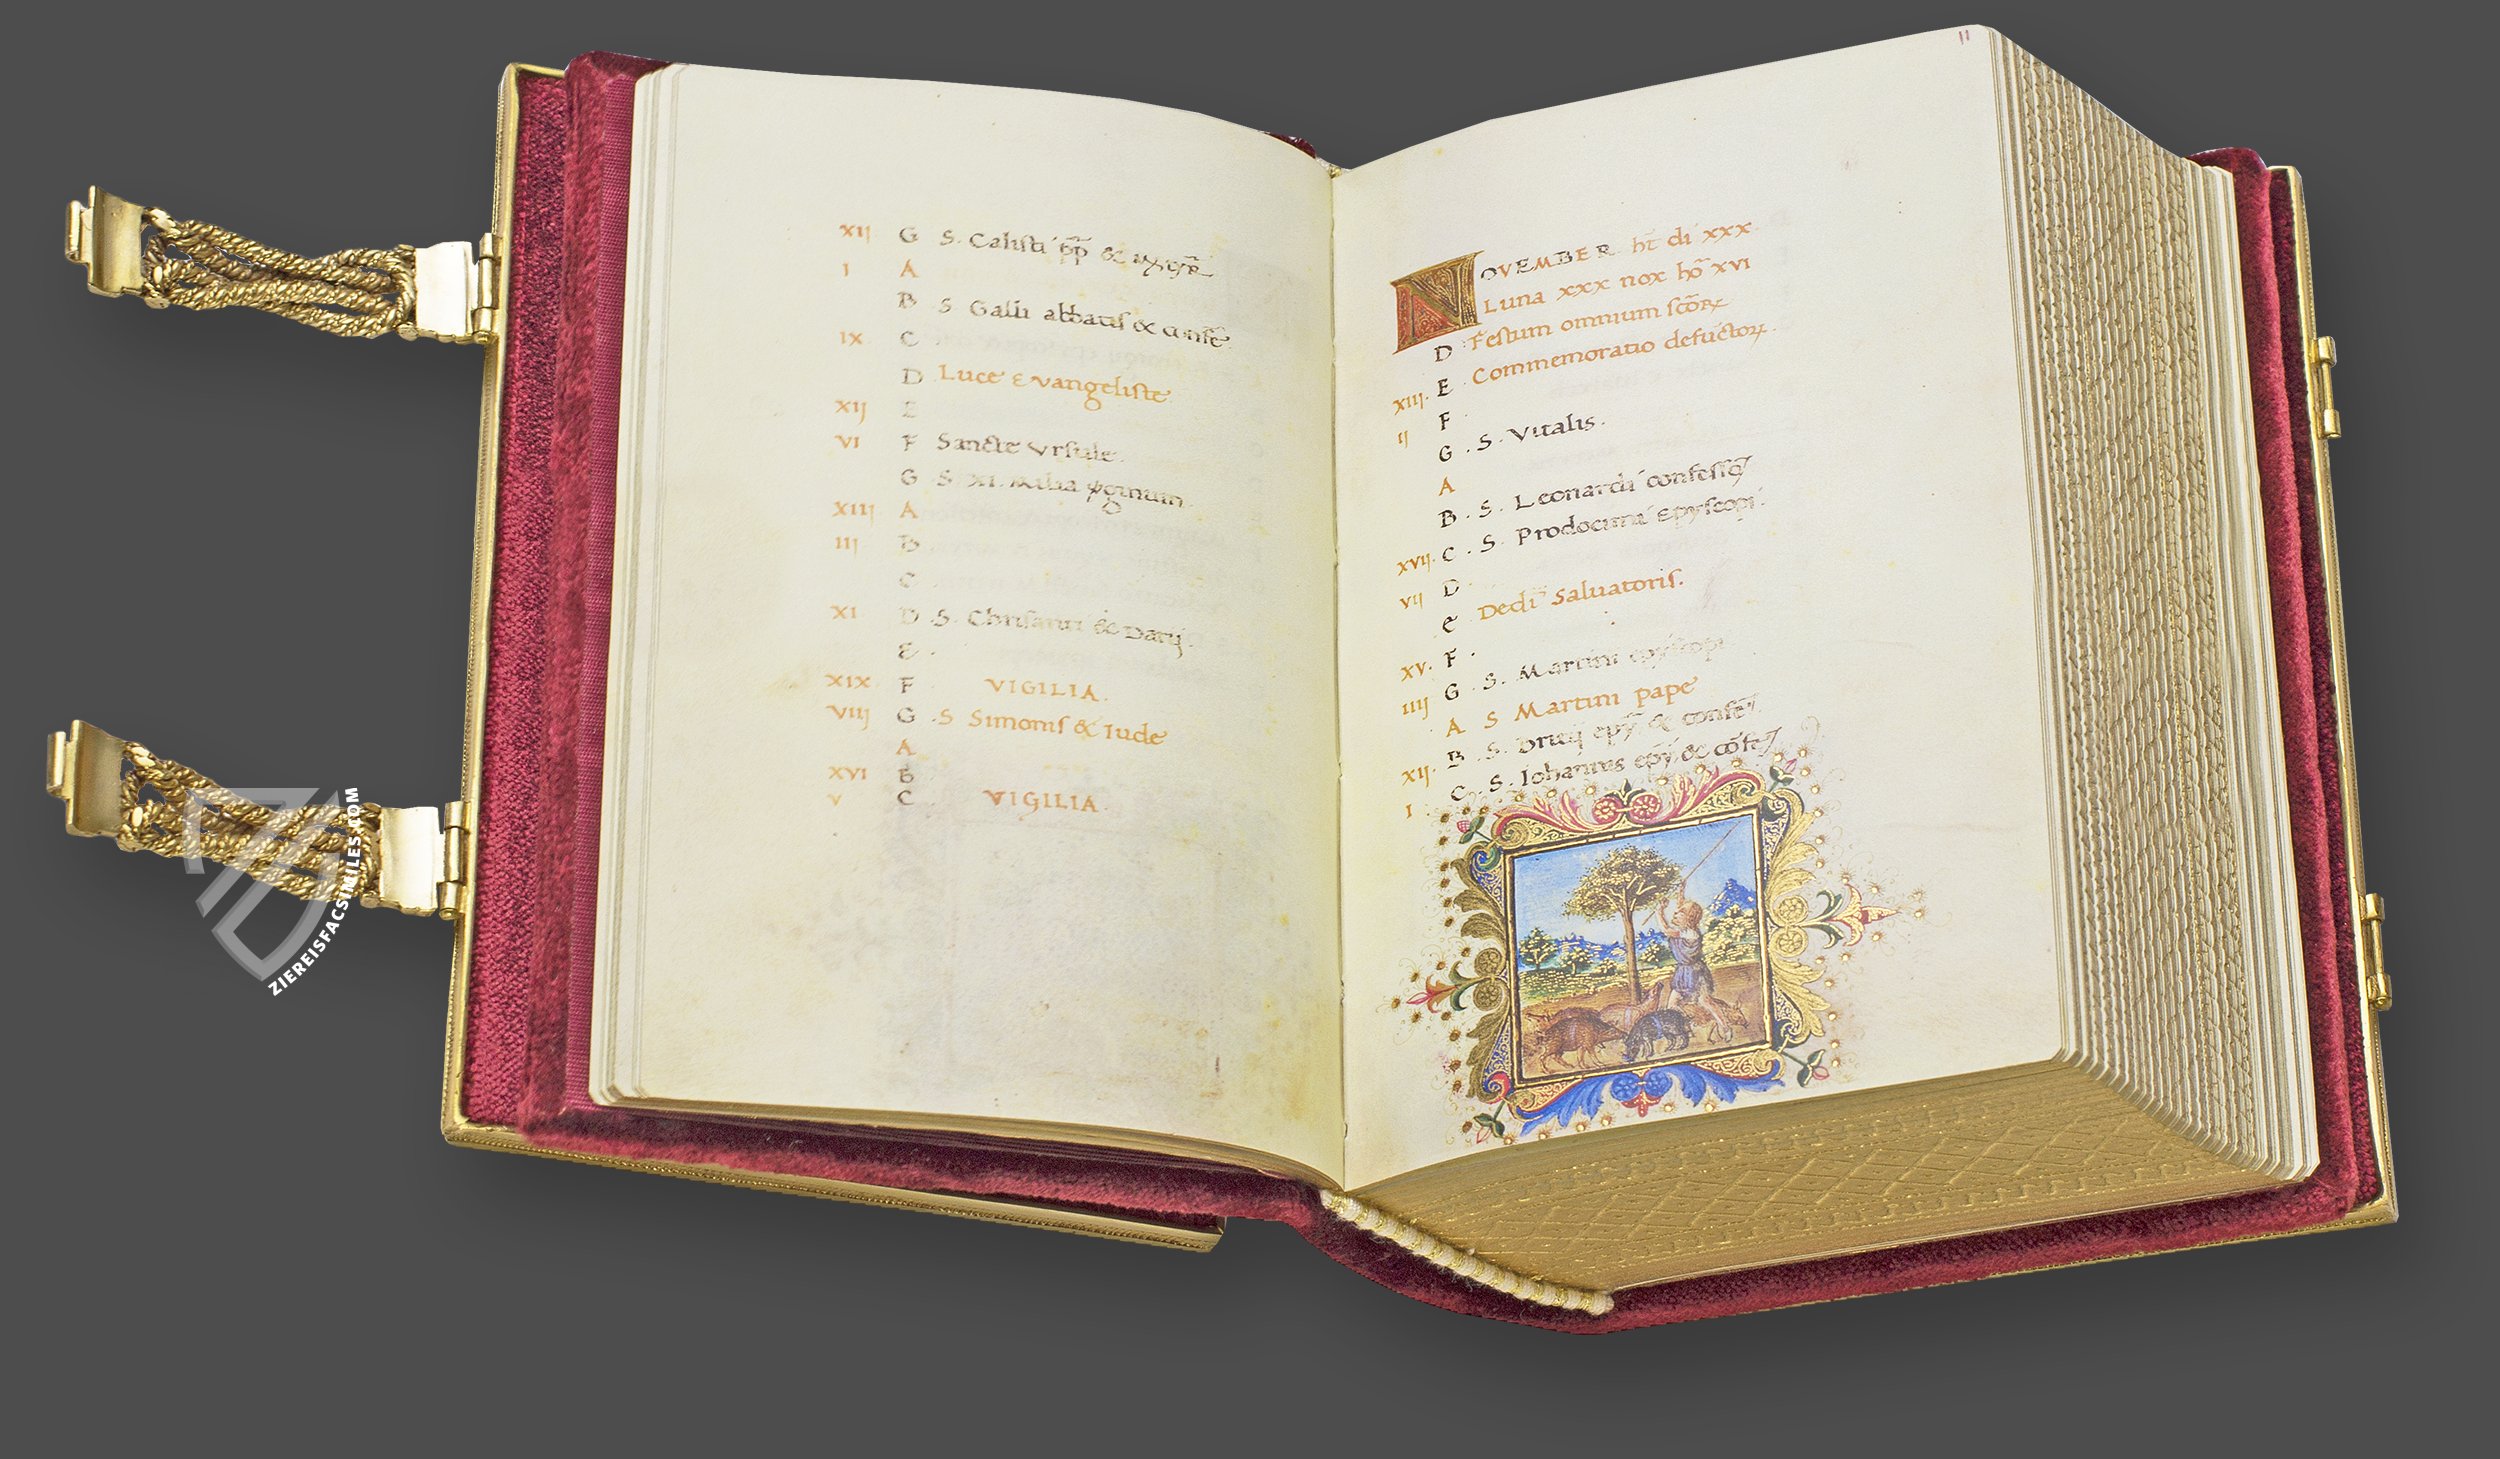 XIJ G S. Calisti pp̄ & mr̄
I A
B S Galli abbatis & confe
IX C
D Luce Evangeliste
XIJ E
VI F Sancte Ursule.
G S. XI. Milia v̄ginum.
XIIJ A
IIJ B
C
XI D .S. Chrisanti & Darij.
E .
XIX F VIGILIA.
VIIJ G .S Simonis & Iude
A
XVI B
V C VIGILIA.
11
NOVEMBER. ht̄ di xxx
Luna xxx nox ho᷃ xvi
D .Festum omnium sc̄oꝝ
XIIJ. E .Commemoratio defūctoꝝ.
IJ F .
G . S. Vitalis.
A
B . S. Leonardi confesso
XVIJ. C . S. Prodocimi Epyscopi.
VIJ D.
E Dedi᷃ Salvatoris.
XV. F .
IIIJ G . S. Martini epyscopi
A S Martini pape
XIJ. B . S. Britij epy & confe
I C . S. Iohannis epy & cōfe
ZIEREISFACSIMILES.COM